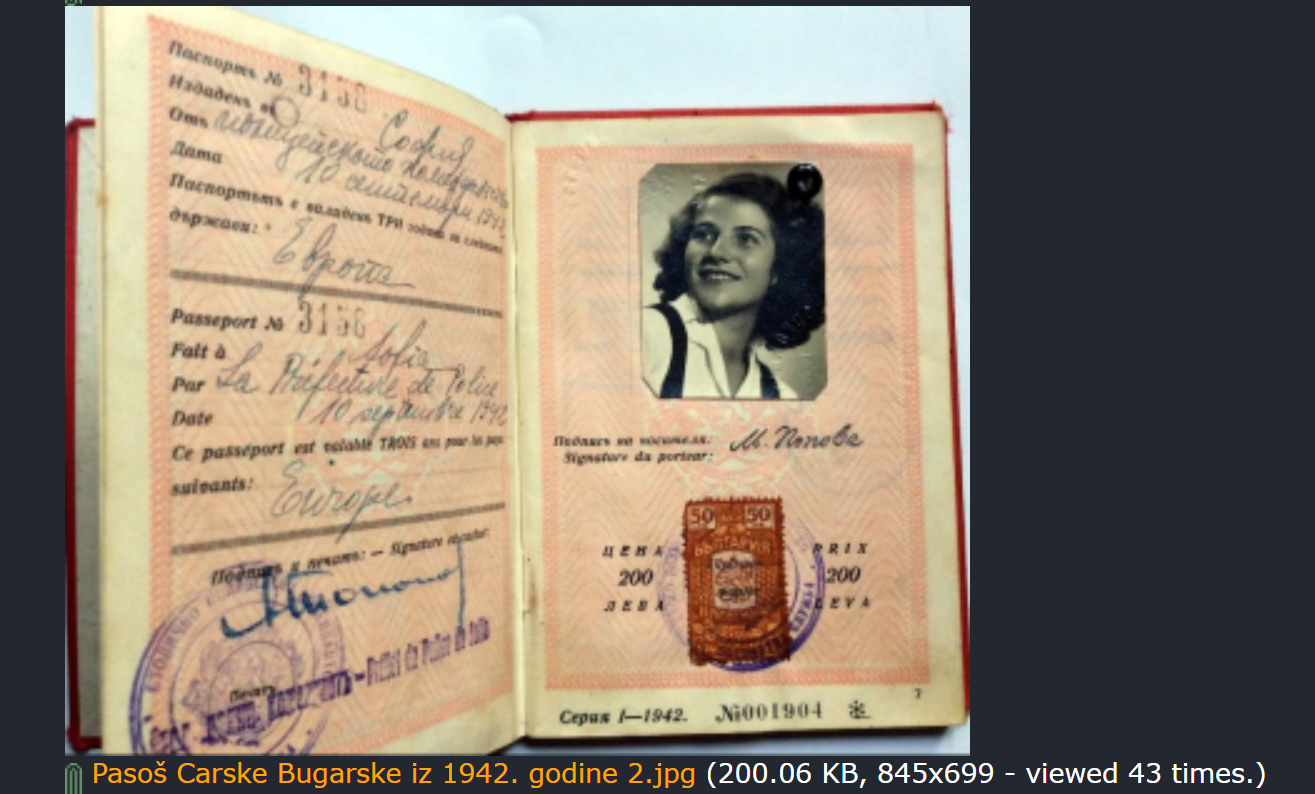 Паспортъ № 3156
Издаденъ въ София
Отъ полицейското комендантство
Дата 10 септември 1942
Паспортътъ е валиденъ ТРИ години за следните
държави:
Европа
Passeport № 3156
Fait à Sofia
Par La Préfecture de Police
Date 10 septembre 1942
Ce passeport est valable TROIS ans pour les pays
suivants:
Europe
Подпис и печатъ: — Signature et cachet:
Печатъ
Комендантъ – Préfet de Police de Sofia
Подпись на носителя:
Signature du porteur:
М. Попова
50 50
БЪЛГАРИЯ
ЦЕНА
200
ЛЕВА
PRIX
200
LEVA
СЛУЖБА
Серия I—1942. №001904
3
Pasoš Carske Bugarske iz 1942. godine 2.jpg (200.06 KB, 845x699 - viewed 43 times.)